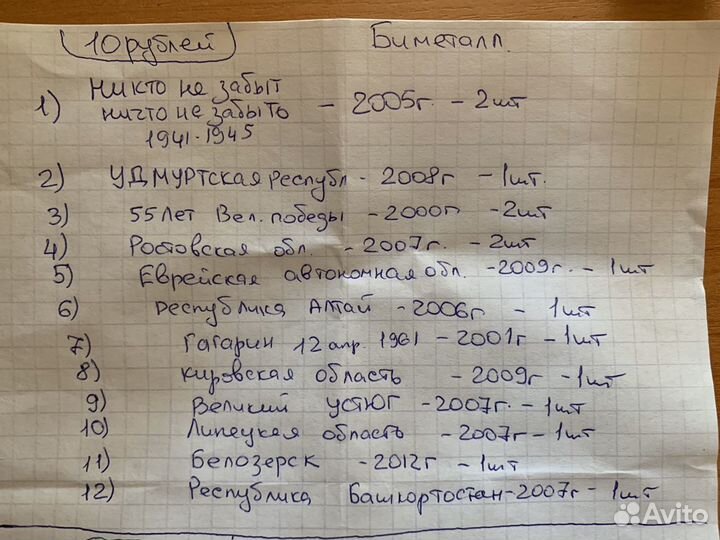 10 рублей Биметалл.
Никто не забыт
1) ничто не забыто - 2005г. - 2 шт
1941-1945
2) Удмуртская республ - 2008г - 1шт.
3) 55 лет Вел. победы - 2000г - 2шт
4) Ростовская обл. - 2007г. - 2шт
5) Еврейская автономная обл. - 2009г. - 1шт
6) Республика Алтай - 2006г - 1шт
7) Гагарин 12 апр. 1961 - 2001г - 1шт
8) Кировская область - 2009г - 1шт
9) Великий Устюг - 2007г. - 1шт
10) Липецкая область - 2007г - 1шт
11) Белозерск - 2012г - 1шт
12) Республика Башкортостан - 2007г - 1шт
Avito